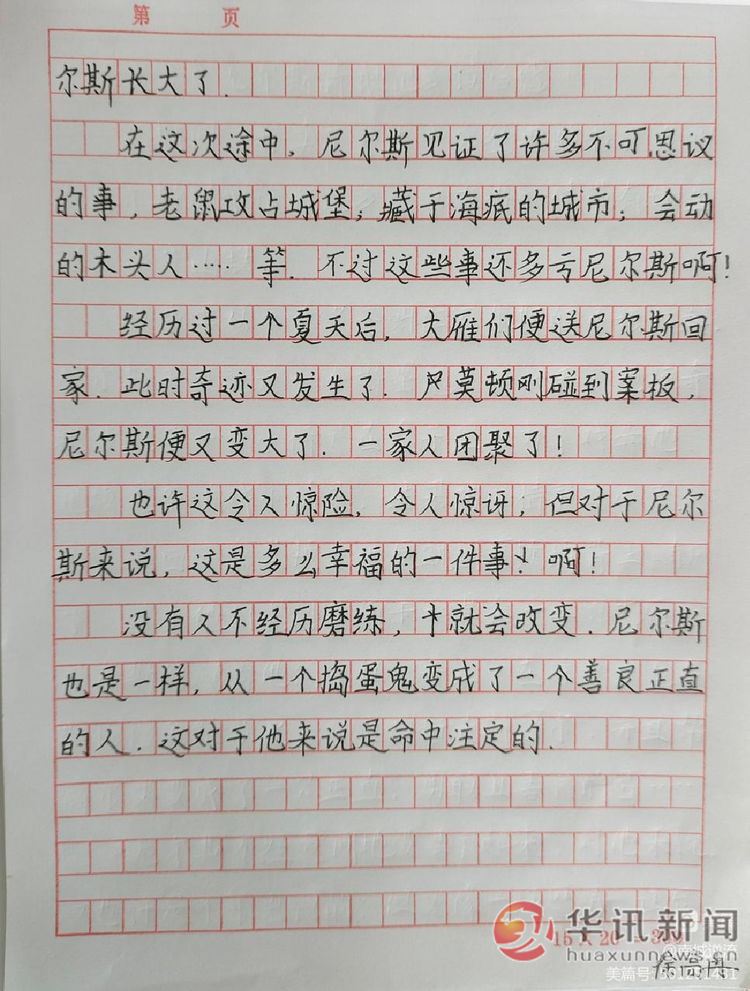 第 页
尔斯长大了.
在这次途中，尼尔斯见证了许多不可思议
的事，老鼠攻占城堡；藏于海底的城市；会动
的木头人……等．不过这些事还多亏尼尔斯啊！
经历过一个夏天后，大雁们便送尼尔斯回
家．此时奇迹又发生了．尺莫顿刚碰到案板，
尼尔斯便又变大了．一家人团聚了！
也许这令人惊险，令人惊讶；但对于尼尔
斯来说，这是多么幸福的一件事！啊！
没有人不经历磨练，就会改变．尼尔斯
也是一样，从一个捣蛋鬼变成了一个善良正直
的人．这对于他来说是命中注定的．
15×20=300
华讯新闻
huaxunnews.cn